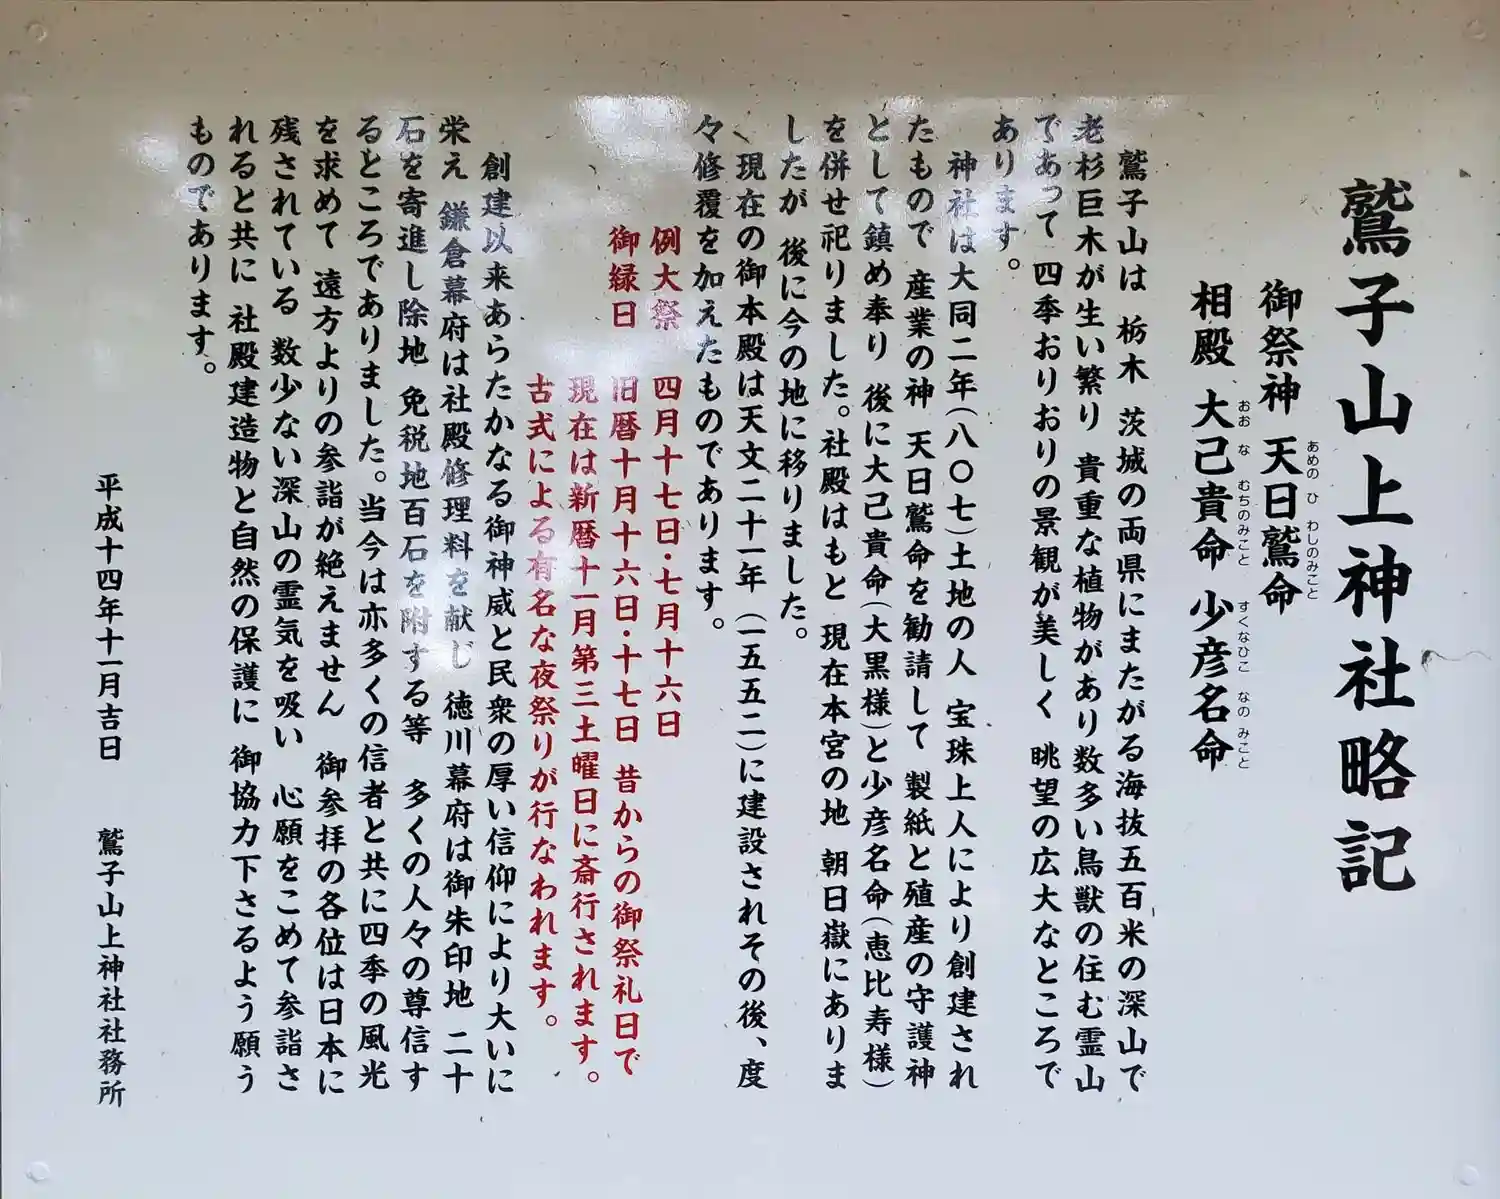 鷲子山上神社略記
御祭神 天日鷲命
あめの ひ わしのみこと
相殿 大己貴命 少彦名命
おお な むちのみこと すくなひこ なの みこと
鷲子山は 栃木 茨城の両県にまたがる海抜五百米の深山で
老杉巨木が生い繁り 貴重な植物があり数多い鳥獣の住む霊山
であって 四季おりおりの景観が美しく 眺望の広大なところで
あります。
神社は大同二年(八〇七)土地の人 宝珠上人により創建され
たもので 産業の神 天日鷲命を勧請して 製紙と殖産の守護神
として鎮め奉り 後に大己貴命(大黒様)と少彦名命(恵比寿様)
を併せ祀りました。社殿はもと 現在本宮の地 朝日嶽にありま
したが 後に今の地に移りました。
現在の御本殿は天文二十一年(一五五二)に建設されその後、度
々修覆を加えたものであります。
例大祭 四月十七日・七月十六日
御緑日 旧暦十月十六日・十七日 昔からの御祭礼日で
現在は新暦十一月第三土曜日に斎行されます。
古式による有名な夜祭りが行なわれます。
創建以来あらたかなる御神威と民衆の厚い信仰により大いに
栄え 鎌倉幕府は社殿修理料を献じ 徳川幕府は御朱印地 二十
石を寄進し除地 免税地百石を附する等 多くの人々の尊信す
るところでありました。当今は亦多くの信者と共に四季の風光
を求めて 遠方よりの参詣が絶えません 御参拝の各位は日本に
残されている 数少ない深山の霊気を吸い 心願をこめて参詣さ
れると共に 社殿建造物と自然の保護に 御協力下さるよう願う
ものであります。
平成十四年十一月吉日 鷲子山上神社社務所